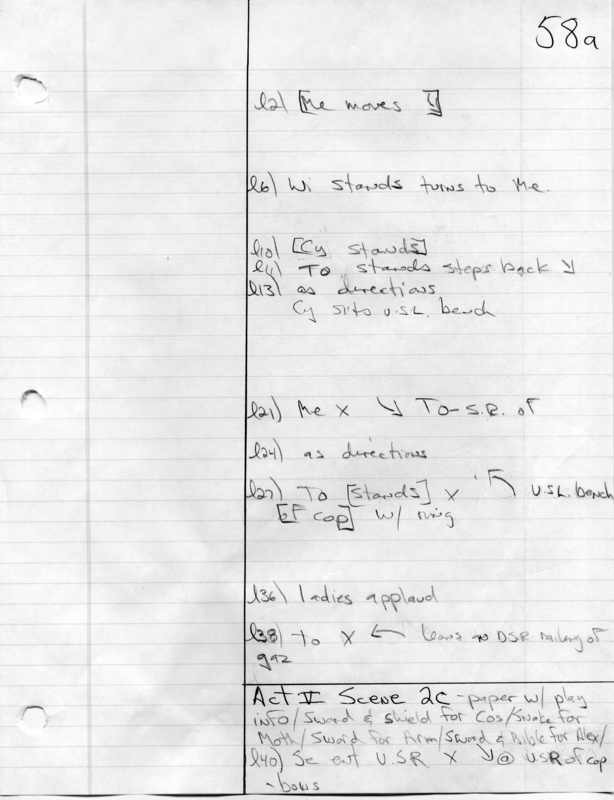 58a
l2) [Me moves ↙]
l6) Wi stands turns to Me.
l10) [Cy stands]
l11) TO stands steps back ↘
l13) as directions
Cy sits U.S.L. bench
l21) Me X ↘ TO-S.R. of
l24) as directions
l27) TO [stands] X U.S.L. bench
[EF cop] w/ ring
l36) ladies applaud
l38) to X ← leans on DSR railing of
gaz
Act V Scene 2c - paper w/ play
info/Sword & shield for Cos/Snake for
Moth/Sword for Arm/Sword & Bible for Alex/
l40) Se ent U.S.R. X ↘ @ USR of cop
- bows